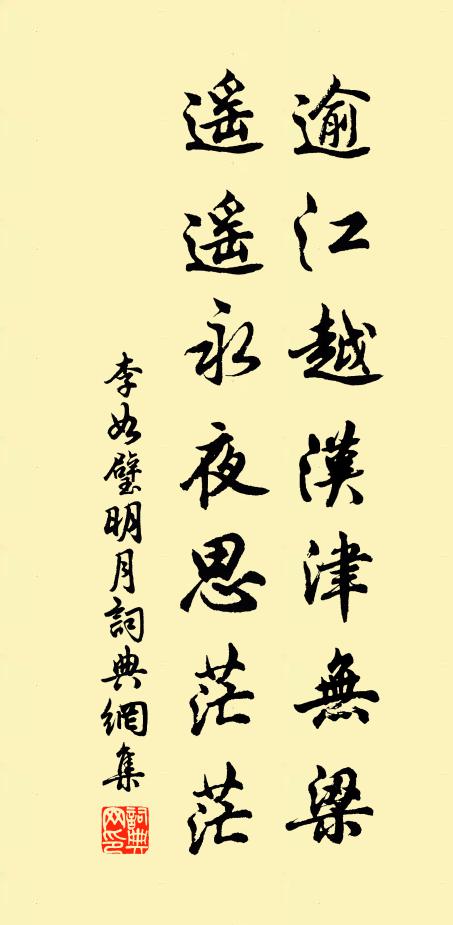 逾江越漢津無梁
遥遥永夜思茫茫
李如璧明月詞典網集
詞典网印